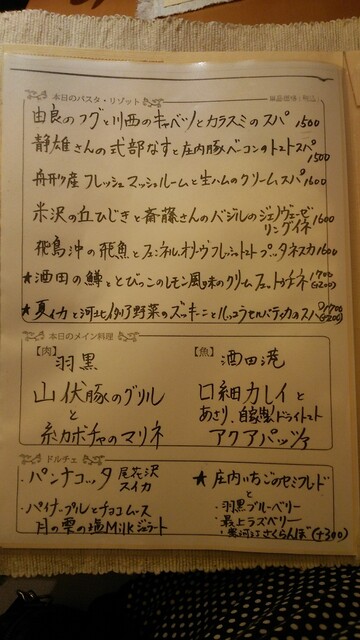 本日のパスタ・リゾット
由良のフグと川西のキャベツとカラスミのスパ 1500
静雄さんの式部なすと庄内豚ベーコンのトマトスパ 1500
舟形産フレッシュマッシュルームと生ハムのクリームスパ 1600
米沢の丘ひじきと斎藤さんのバジルのジェノヴェーゼ リングイネ 1600
飛島沖の飛魚とフェンネル、オリーヴ、フレッシュトマト プッタネスカ 1600
★酒田の鱒ととびっこのレモン風味のクリームフェットチネ 1700 (+200)
★夏イカと河北イタリア野菜のズッキーニとルッコラセルバティカのスパ 1700 (+200)
本日のメイン料理
【肉】
羽黒
山伏豚のグリル
と
糸カボチャのマリネ
【魚】
酒田港
口細カレイと
あさり、自家製ドライトマト
アクアパッツァ
ドルチェ
・パンナコッタ 尾花沢スイカ
・パイナップルとチョコムース
月の雫の塩Milkジェラート
★庄内いちごのセミフレド
と
・羽黒ブルーベリー
・最上ラズベリー
・寒河江さくらんぼ (+300)